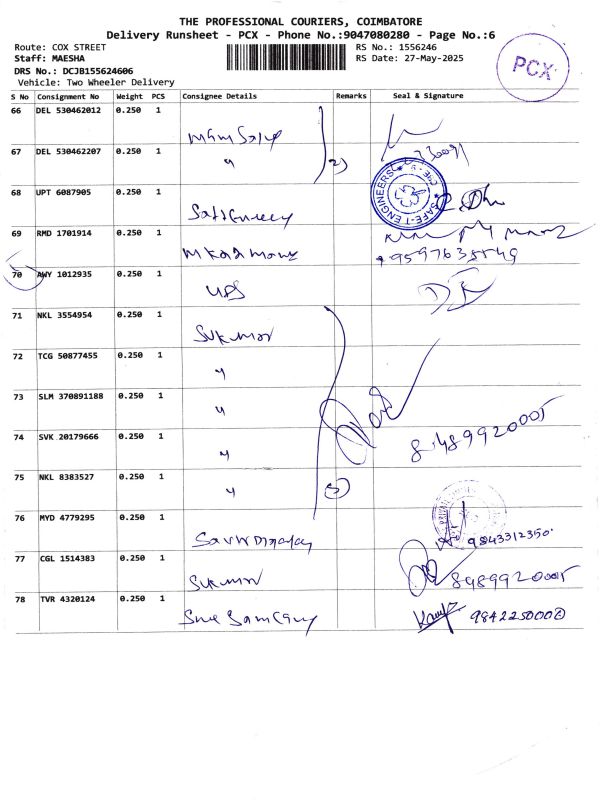 THE PROFESSIONAL COURIERS, COIMBATORE
Delivery Runsheet - PCX - Phone No.:9047080280 - Page No.:6
Route: COX STREET RS No.: 1556246
Staff: MAESHA RS Date: 27-May-2025
DRS No.: DCJB155624606
Vehicle: Two Wheeler Delivery
PCX
S No Consignment No Weight PCS Consignee Details Remarks Seal & Signature
66 DEL 530462012 0.250 1
67 DEL 530462207 0.250 1 " 2)
68 UPT 6087905 0.250 1
SAFE-T-ENGINEERS
69 RMD 1701914 0.250 1
70 AWY 1012935 0.250 1 UPS
71 NKL 3554954 0.250 1 Svkumar
72 TCG 50877455 0.250 1 "
73 SLM 370891188 0.250 1 "
74 SVK 20179666 0.250 1 " 8489920005
75 NKL 8383527 0.250 1 " 5)
76 MYD 4779295 0.250 1 9843312350
77 CGL 1514383 0.250 1 Svkumar 8489920005
78 TVR 4320124 0.250 1 9842250002